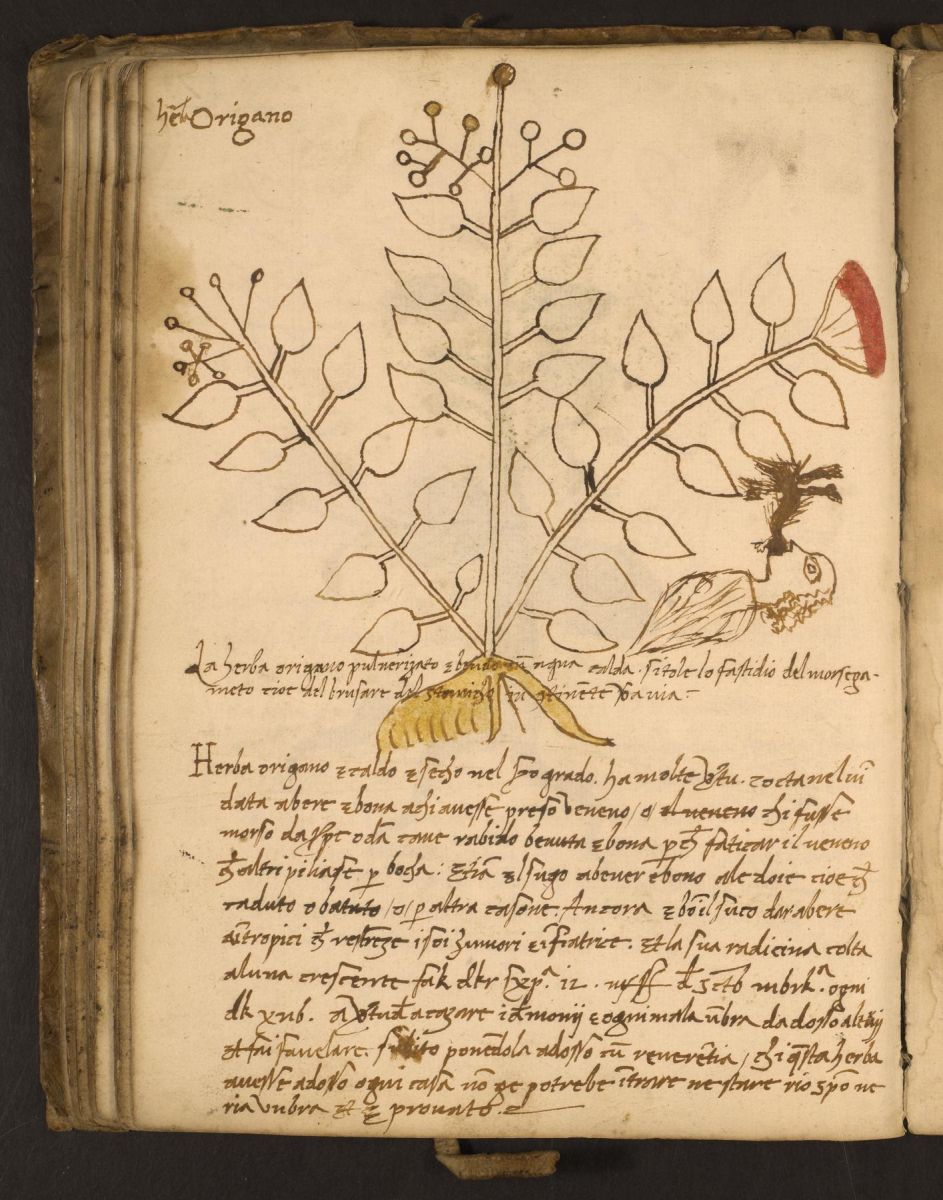 herba Origano
La herba origano pulverizato & beuudo cū aqua calda. si tole lo fastidio del morsega-
meto cioe del brusare del stomicho
Herba origano & caldo & secho nel grado. ha molte v̄tu. cocta nel uī
data a bere & bona a chi avesse preso veneno /o/ el veneno chi fusse
morso da o da cane rabido bevuta & bona p ch̄ fa ticar il veneno
ch̄ altri piliasse p bocha: & tiā el sugo a bever e bono ale doie cioe ch̄
caduto o batuto /o/ p altra casone. Ancora & bō il suco dar a bere
ai tropici ch̄ restrēze i soi humori & īfiatrice. et la sua radicina colta
a luna crescente fak dkr sxp.ª 12. ogni
dk xnb. a v̄tu d̄ a cazare i demonii & ogni mala ūbra da dosso altrij
et fai favelare. subito ponēdola adosso cū reverētia / chi q̄sta herba
avesse adosso ogni casa nō ge potrebe ītrare ne stare rio spō ne
ria vmbra et & provato.